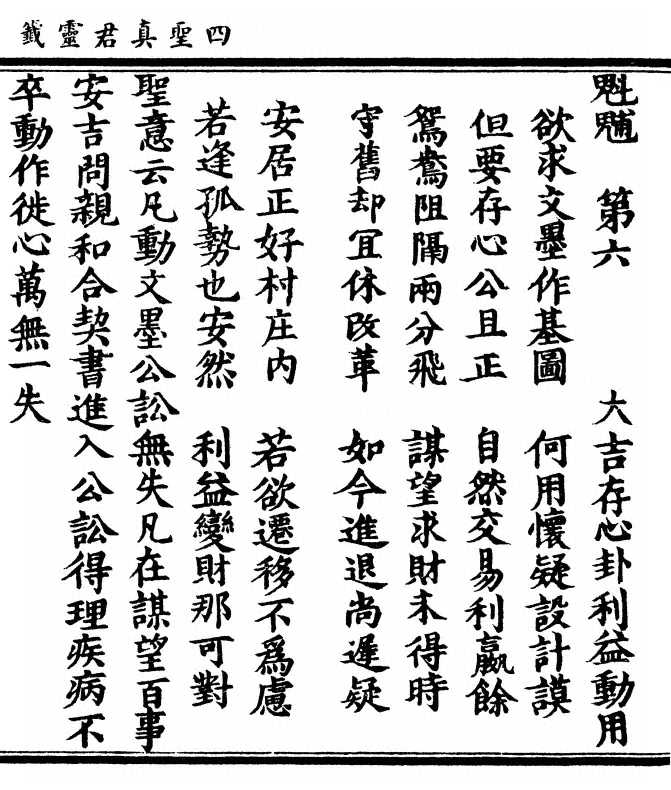 四聖真君靈籤
魁魓　第六　大吉存心卦利益動用
欲求文墨作基圖　何用懷疑設計謨
但要存心公且正　自然交易利嬴餘
鴛鴦阻隔兩分飛　謀望求財未得時
守舊却冝休改革　如今進退尚遲疑
安居正好村庄内　若欲遷移不爲慮
若逢孤勢也安然　利益變財那可對
聖意云凡動文墨公訟無失凡在謀望百事
安吉問親和合契書進入公訟得理疾病不
卒動作徙心萬無一失